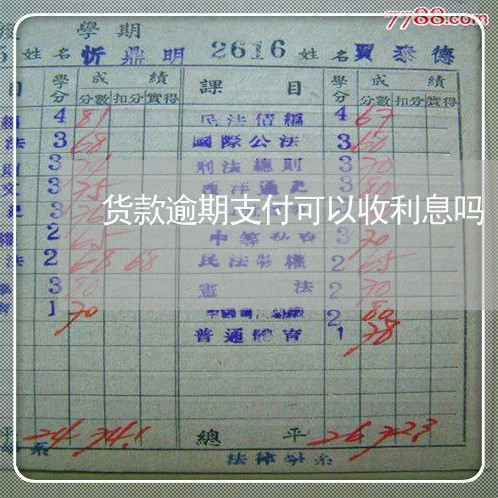 7788.com
學期
姓名 忻鼎明 2616 姓名 賈泰德
目 學分 成績 課目 學分 成績
分數 扣分 實得 分數 扣分 實得
4 81 民法債編 4 67
法 3 68 國際公法 3 60
3 刑法總則 3 70
3 75 西洋通史 3 80
货款逾期支付可以收利息吗
2 65 3 70
法 2 68 68 民法物權 2 65
3 80 憲法 2 70
1 70 2 80
普通體育 1 78
平 24 74.1 總平 26 72.3
系 法律學系